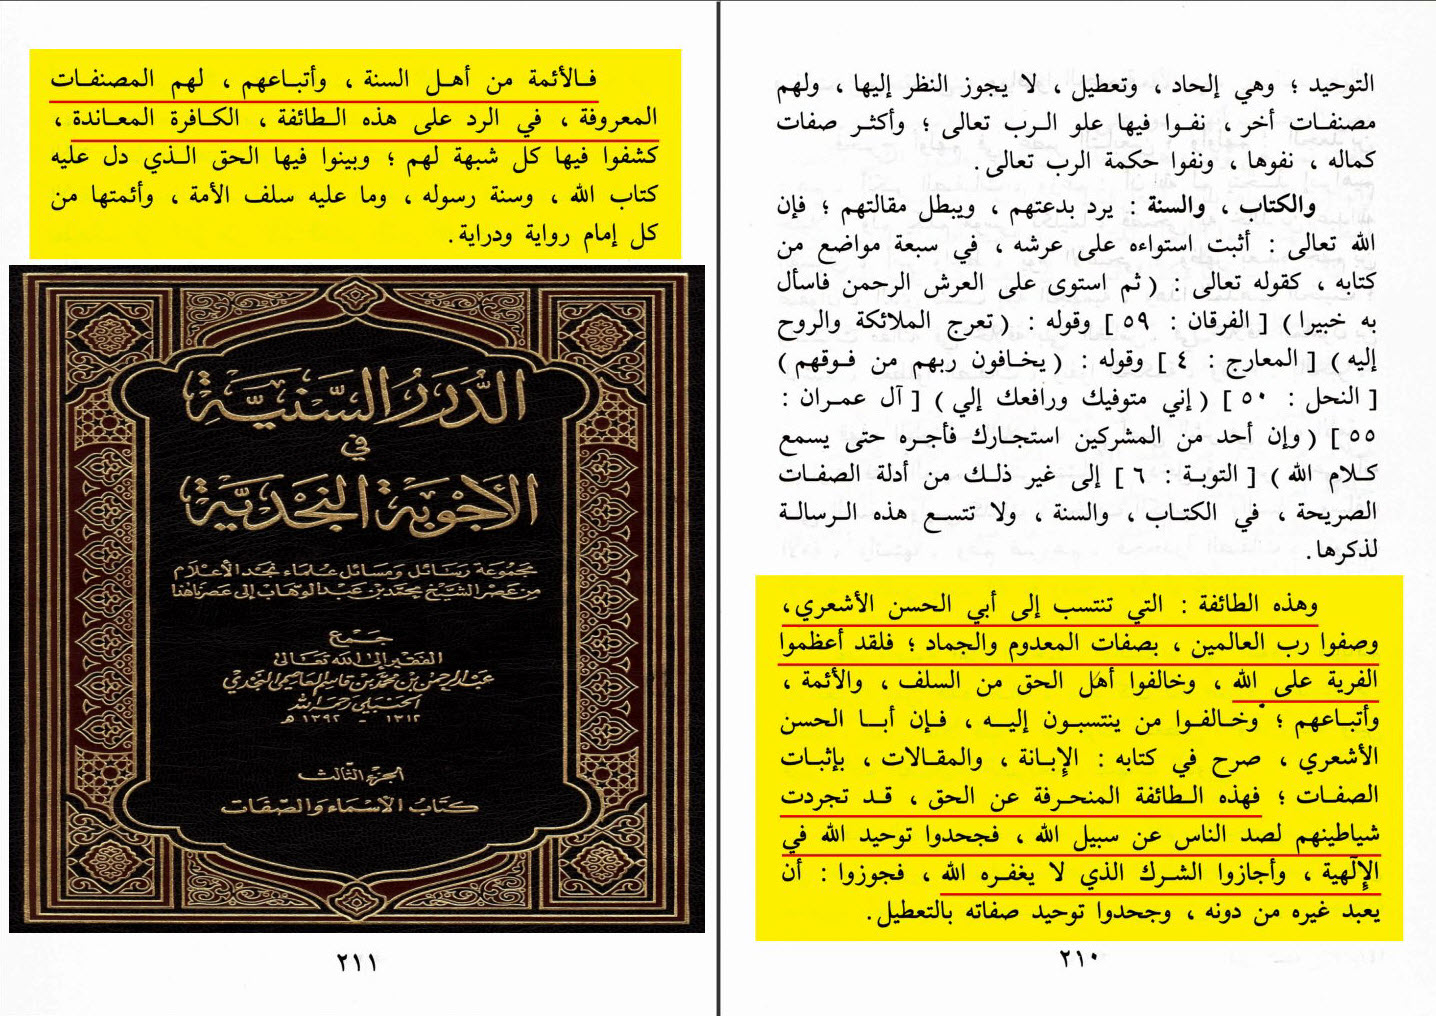 التوحيد ؛ وهي إلحاد ، وتعطيل ، لا يجوز النظر إليها ، ولهم
مصنفـات أخر ، نفـوا فيها علو الـرب تعالى ؛ وأكثـر صفات
كماله ، نفوها ، ونفوا حكمة الرب تعالى .
والكتاب ، والسنة : يرد بدعتهم ، ويبطل مقالتهم ؛ فإن
الله تعالى : أثبت استواءه على عرشه ، في سبعة مواضع من
كتابه ، كقوله تعالى : ( ثم استوى على العرش الرحمن فاسأل
به خبيرا ) [ الفرقان : ٥٩ ] وقوله : ( تعرج الملائكة والروح
إليه ) [ المعارج : ٤ ] وقوله : ( يخـافون ربهم من فـوقهم )
[ النحل : ٥٠ ] ( إني متوفيك ورافعك إلي ) [ آل عمـران :
٥٥ ] ( وإن أحد من المشركين استجارك فأجـره حتى يسمع
كـلام الله ) [ التوبـة : ٦ ] إلى غير ذلـك من أدلة الصفات
الصريحة ، في الكتـاب ، والسنة ، ولا تتسـع هذه الـرسالـة
لذكرها .
وهذه الطائفة : التي تنتسب إلى أبي الحسن الأشعري ،
وصفوا رب العالمين ، بصفات المعدوم والجماد ؛ فلقد أعظموا
الفرية على الله ، وخالفوا أهل الحق من السلف ، والأئمة ،
وأتبـاعهم ؛ وخـالفـوا من ينتسبـون إليـه ، فـإن أبـا الحسن
الأشعري ، صرح في كتابه : الإبـانة ، والمقـالات ، بإثبـات
الصفـات ؛ فهذه الـطائفة المنحـرفة عن الحق ، قـد تجردت
شياطينهم لصد الناس عن سبيل الله ، فجحدوا توحيد الله في
الإلٰهية ، وأجازوا الشـرك الذي لا يغفـره الله ، فجوزوا : أن
يعبد غيره من دونه ، وجحدوا توحيد صفاته بالتعطيل .
٢١٠
فـالأئمة من أهـل السنة ، وأتبـاعهم ، لهم المصنفـات
المعروفة ، في الرد على هذه الـطائفة ، الكـافرة المعـاندة ،
كشفوا فيها كل شبهة لهم ؛ وبينوا فيها الحق الـذي دل عليه
كتاب الله ، وسنة رسوله ، وما عليه سلف الأمة ، وأئمتها من
كل إمام رواية ودراية .
الدُّرَرُ السَّنِيَّة
في
الأَجْوِبَةِ النَّجْدِيَّة
مجموعة رسائل ومسائل علماء نجد الأعلام
من عصر الشيخ محمد بن عبد الوهاب إلى عصرنا هذا
جمع
الفقير إلى الله تعالى
عبد الرحمن بن محمد بن قاسم العاصمي النجدي
الحنبلي رحمه الله
١٣١٢ - ١٣٩٢ هـ
الجزء الثالث
كتاب الأسماء والصفات
٢١١